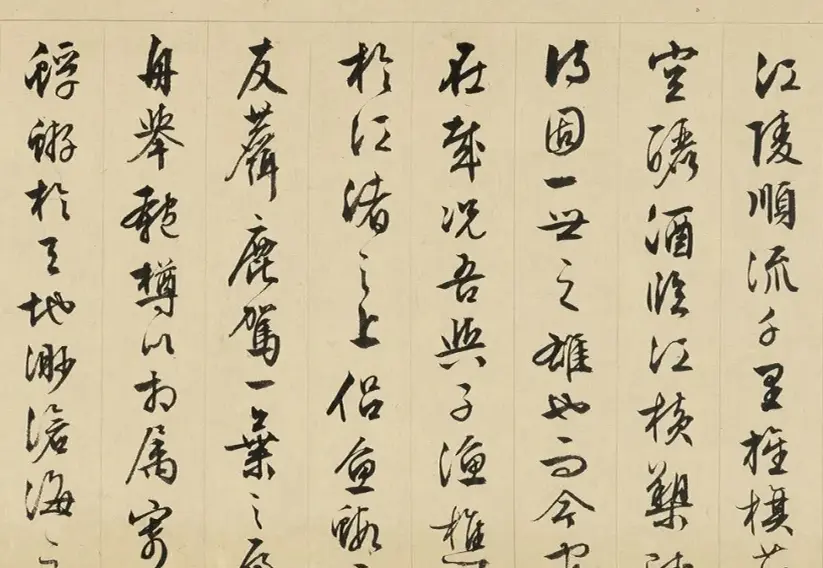 江陵順流千里旌旗
空釃酒臨江橫槊賦
詩固一世之雄也而今安
在哉況吾與子漁樵
於江渚之上侶魚蝦
友鹿駕一葉之扁
舟舉匏樽以相屬寄
蜉蝣於天地渺滄海之